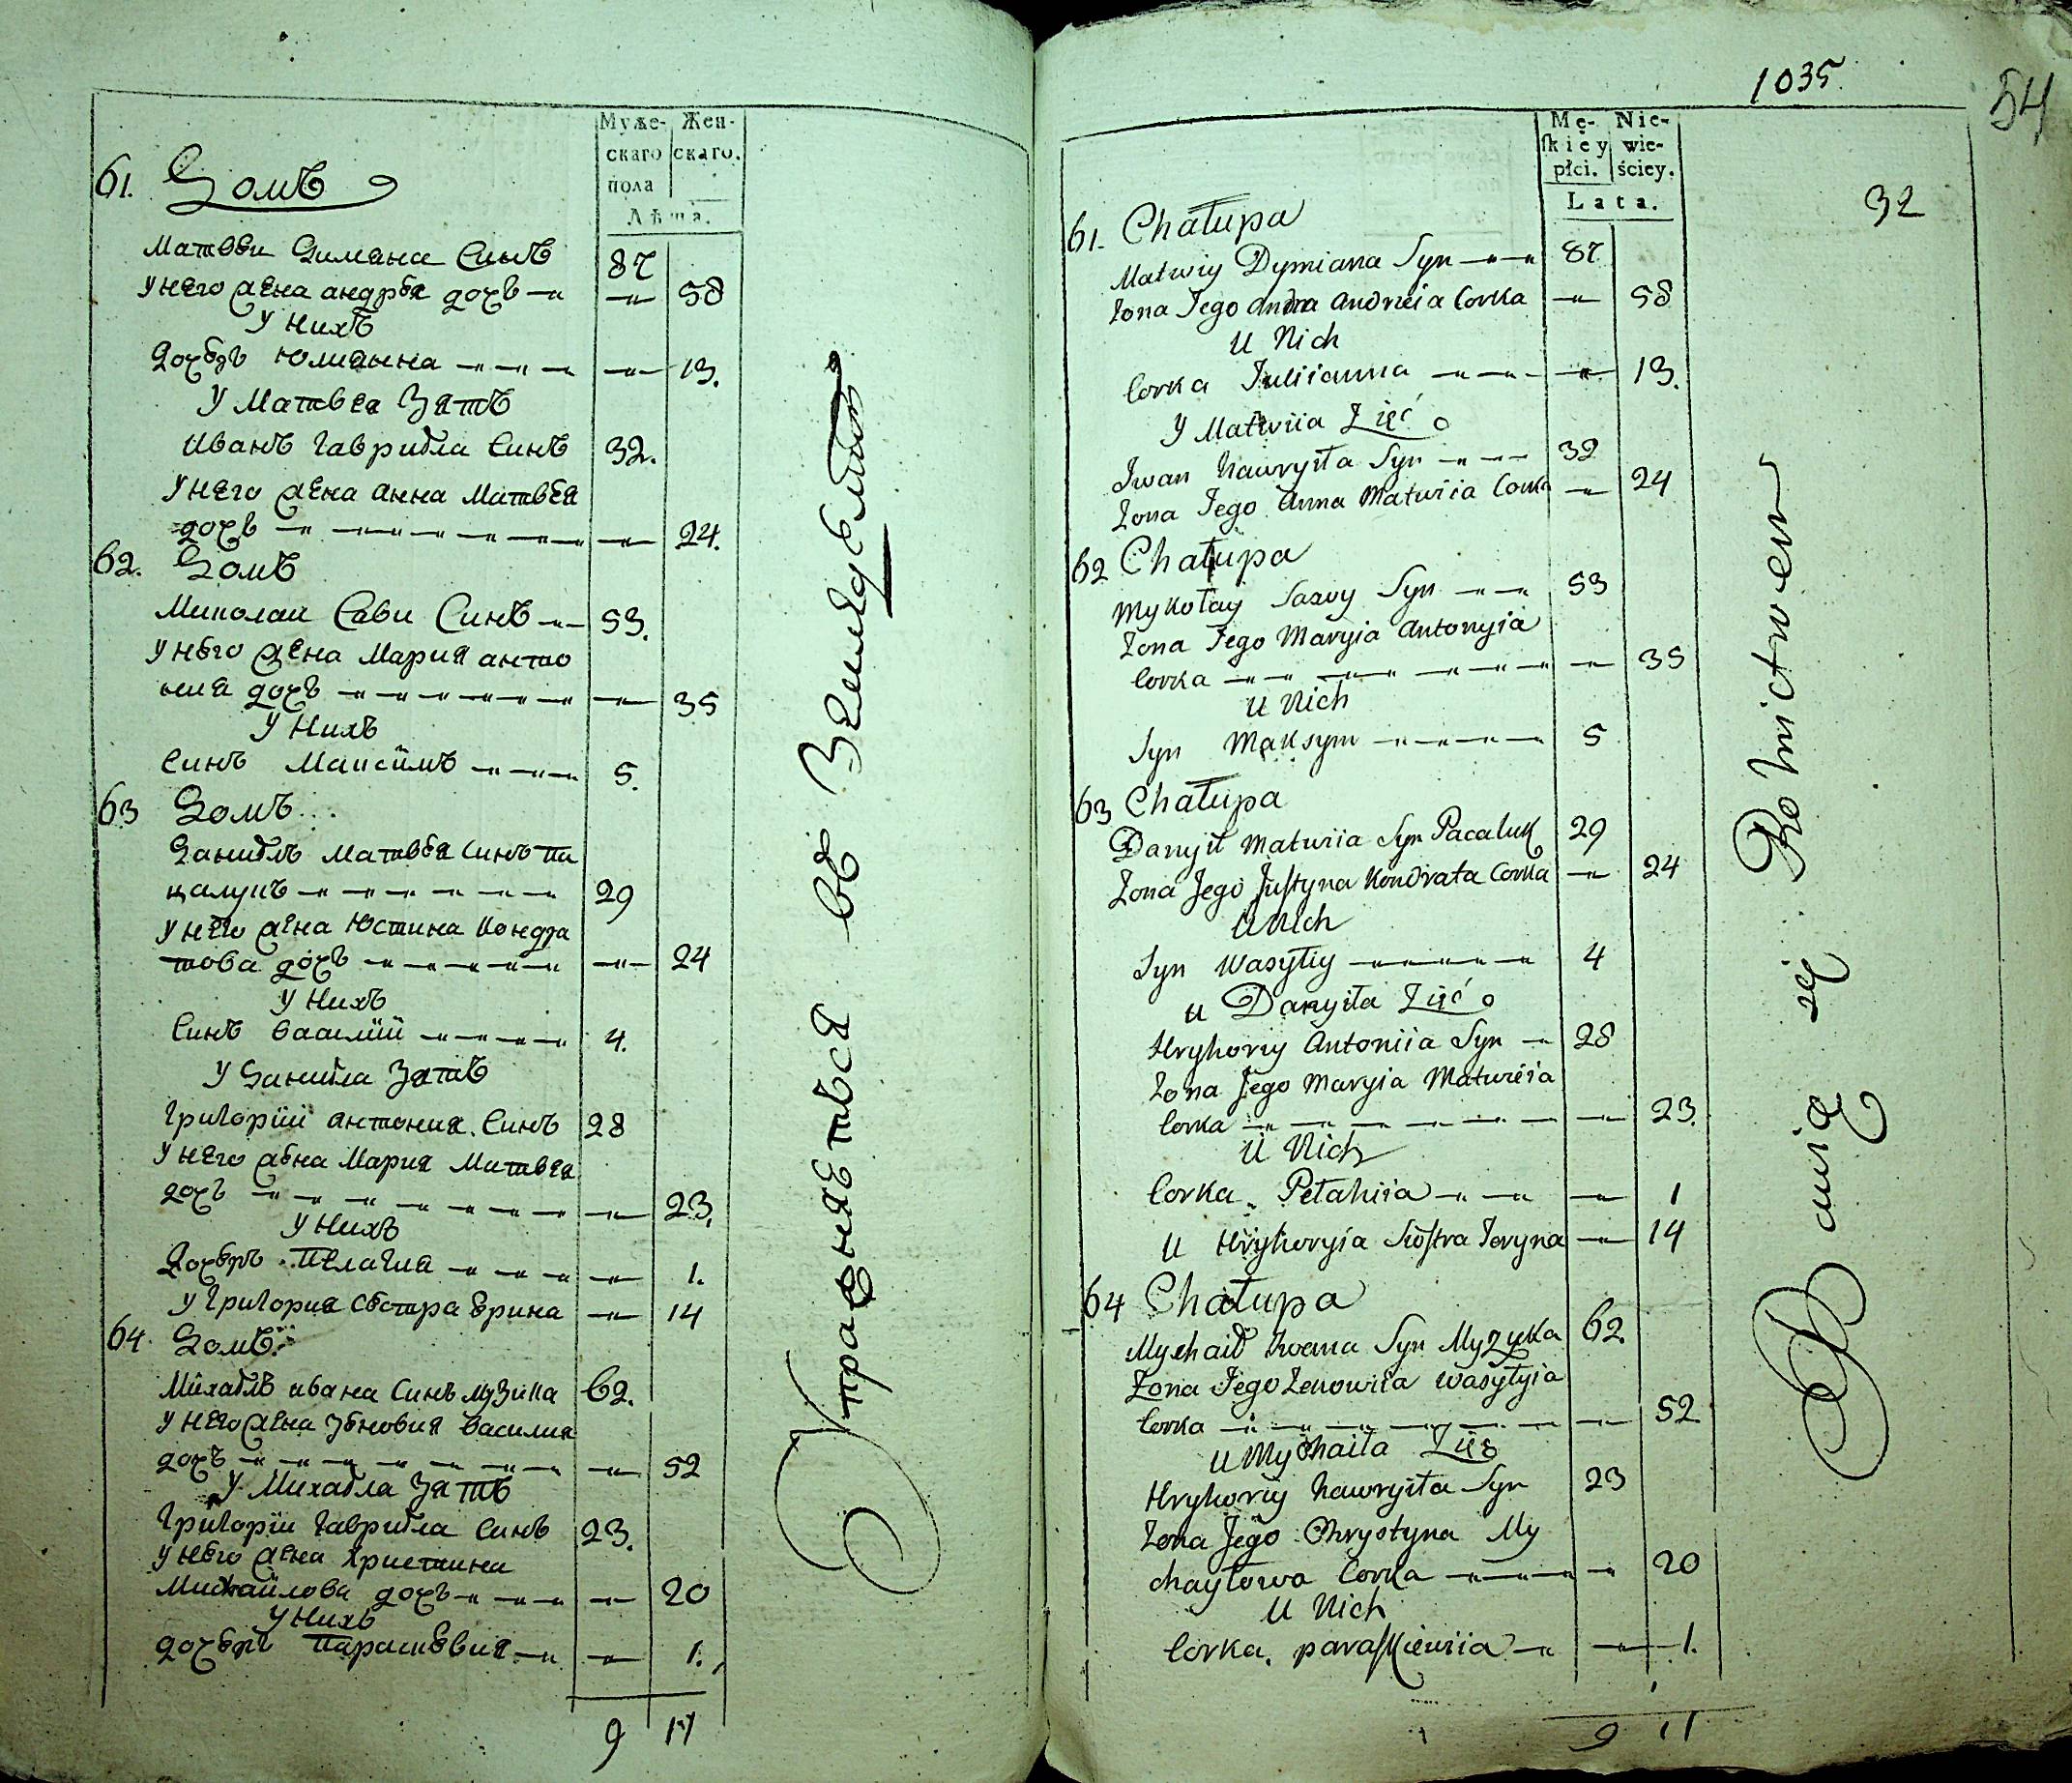 Муже-
скаго
пола
Жен-
скаго.
Лѣта.
61. Домъ
Матвѣи Димяна Синъ 87
У Него жена андрѣя дочъ 58
У Нихъ
Дочѣръ Юлиянна 13.
У Матвея Зять
Иванъ Гавриѣла Синъ 32.
У Него жена Анна Матвѣя
дочъ 24.
62. Домъ
Миколаи Сави Синъ 53.
У Нѣго жена Мария анто
ния дочъ 35
У Нихъ
Синъ Максимъ 5.
63 Домъ
Даниѣлъ Матвѣя Синъ па
цалукъ 29
У Него жена Юстина Кондра
това дочъ 24
У Нихъ
Синъ Василий 4.
У Даниѣла Зять
Григорий антония Синъ 28
У Него жѣна Мария Матвея
дочъ 23.
У Нихъ
Дочѣръ Пелагия 1.
У Григория Сѣстра Ѣрина 14
64. Домъ
Михаѣлъ ивана Синъ Музика 62.
У Него жена Зѣновия Василия
дочъ 52
У Михаѣла Зять
Григорий Гавриѣла Синъ 23.
У Нѣго жена Христина
Михаилова дочъ 20
У Нихъ
дочѣръ Парашевия 1.
9 17
Упражняеться въ Земледелии
1035
54
32
Mę-
skiey
płci.
Nie-
wie-
ściey.
Lata.
61. Chałupa
Matwiy Dymiana Syn 87
Zona Jego Andrieia Corka 58
U Nich
Corka Juliianna 13.
U Matwiia Zięć
Iwan Hawryła Syn 32
Zona Jego Anna Matwiia Corka 24
62 Chałupa
Mykołay Sawy Syn 53
Zona Jego Maryia Antonyia
Corka 35
U Nich
Syn Maksym 5
63 Chałupa
Danyił Matwiia Syn Pacaluk 29
Zona Jego Justyna Kondrata Corka 24
U Nich
Syn Wasyliy 4
U Danyiła Zięć
Hryhoriy Antoniia Syn 28
Zona Jego Maryia Matwieia
Corka 23.
U Nich
Corka Pelahiia 1
U Hryhoryia Siostra Jeryna 14
64 Chałupa
Mychaił Iwana Syn Myzyka 62.
Zona Jego Zenowiia Wasylyia
Corka 52
U Mychaiła Zięć
Hryhoriy Hawryiła Syn 23
Zona Jego Chrystyna My
chayłowa Corka 20
U Nich
Corka. paraskiewiia 1.
9 11
Bawią się Rolnictwem